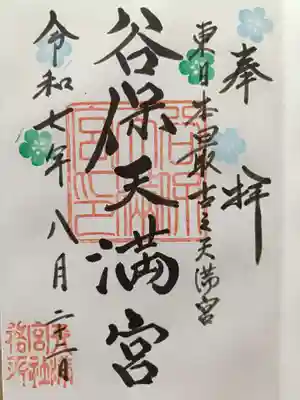 奉拝
東日本最古之天満宮
谷保天満宮
令和七年八月二十二日